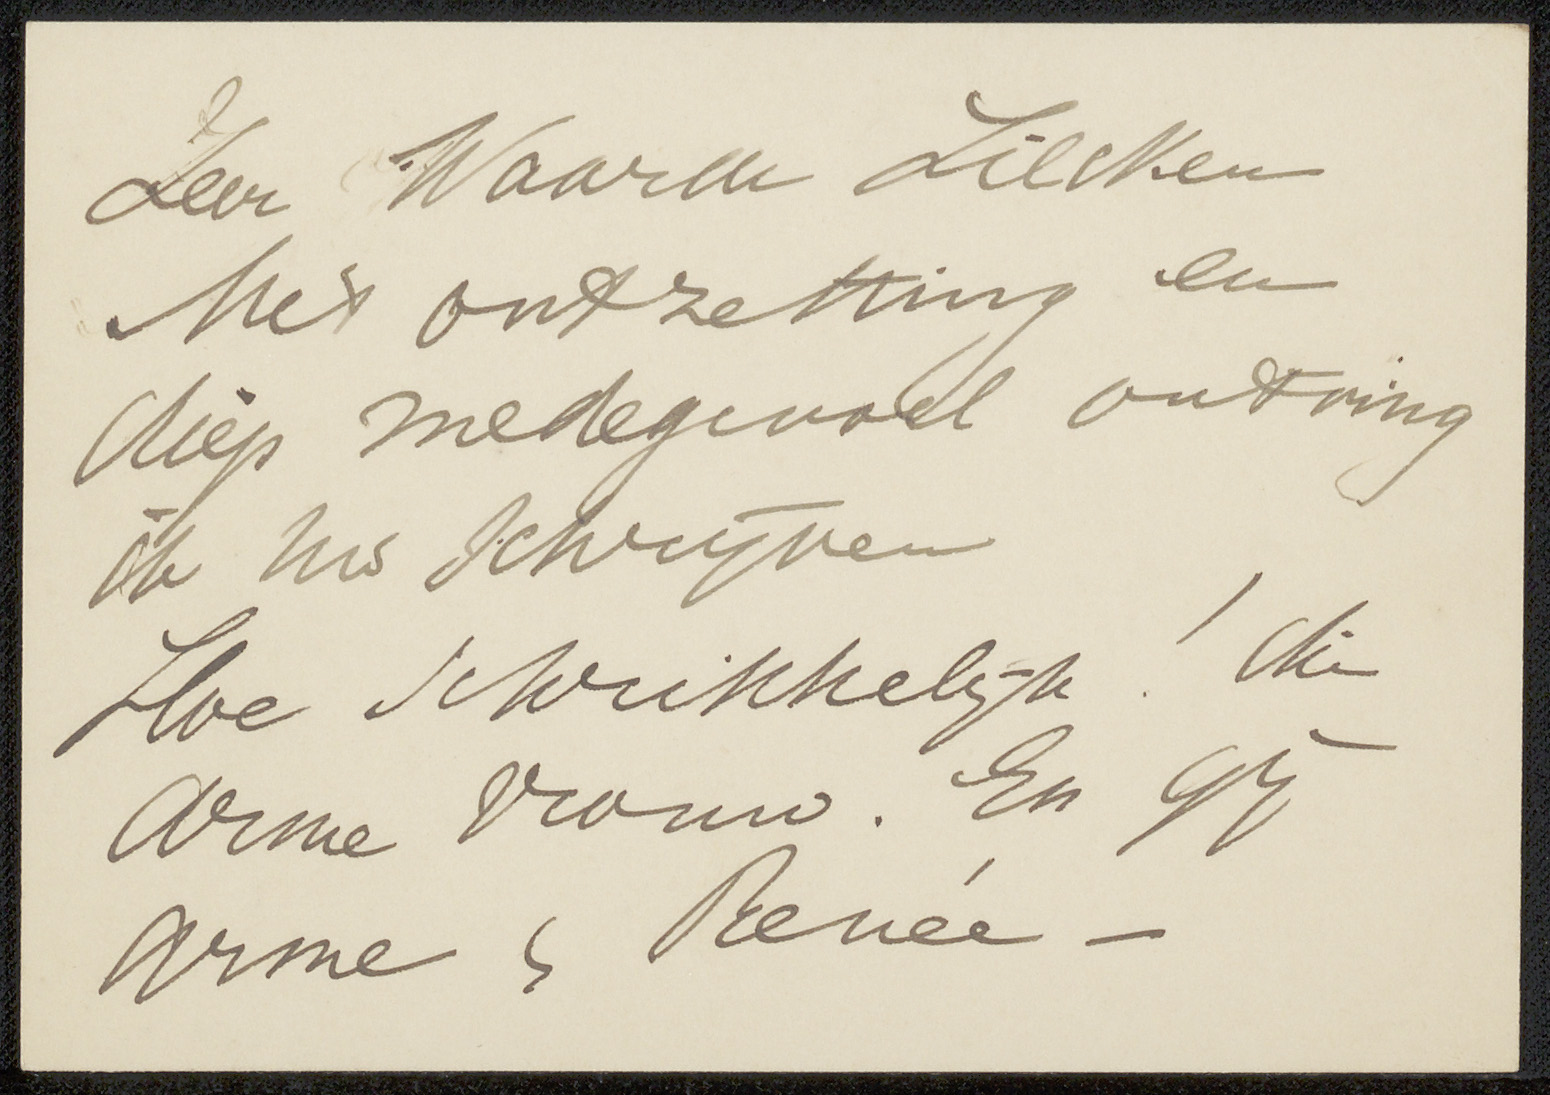 Zeer Waarde Zilcken
Met ontzetting en
diep medegevoel ontving
ik Uw schrijven
Hoe schrikkelijk! die
arme vrouw. En gij
arme, Renée —